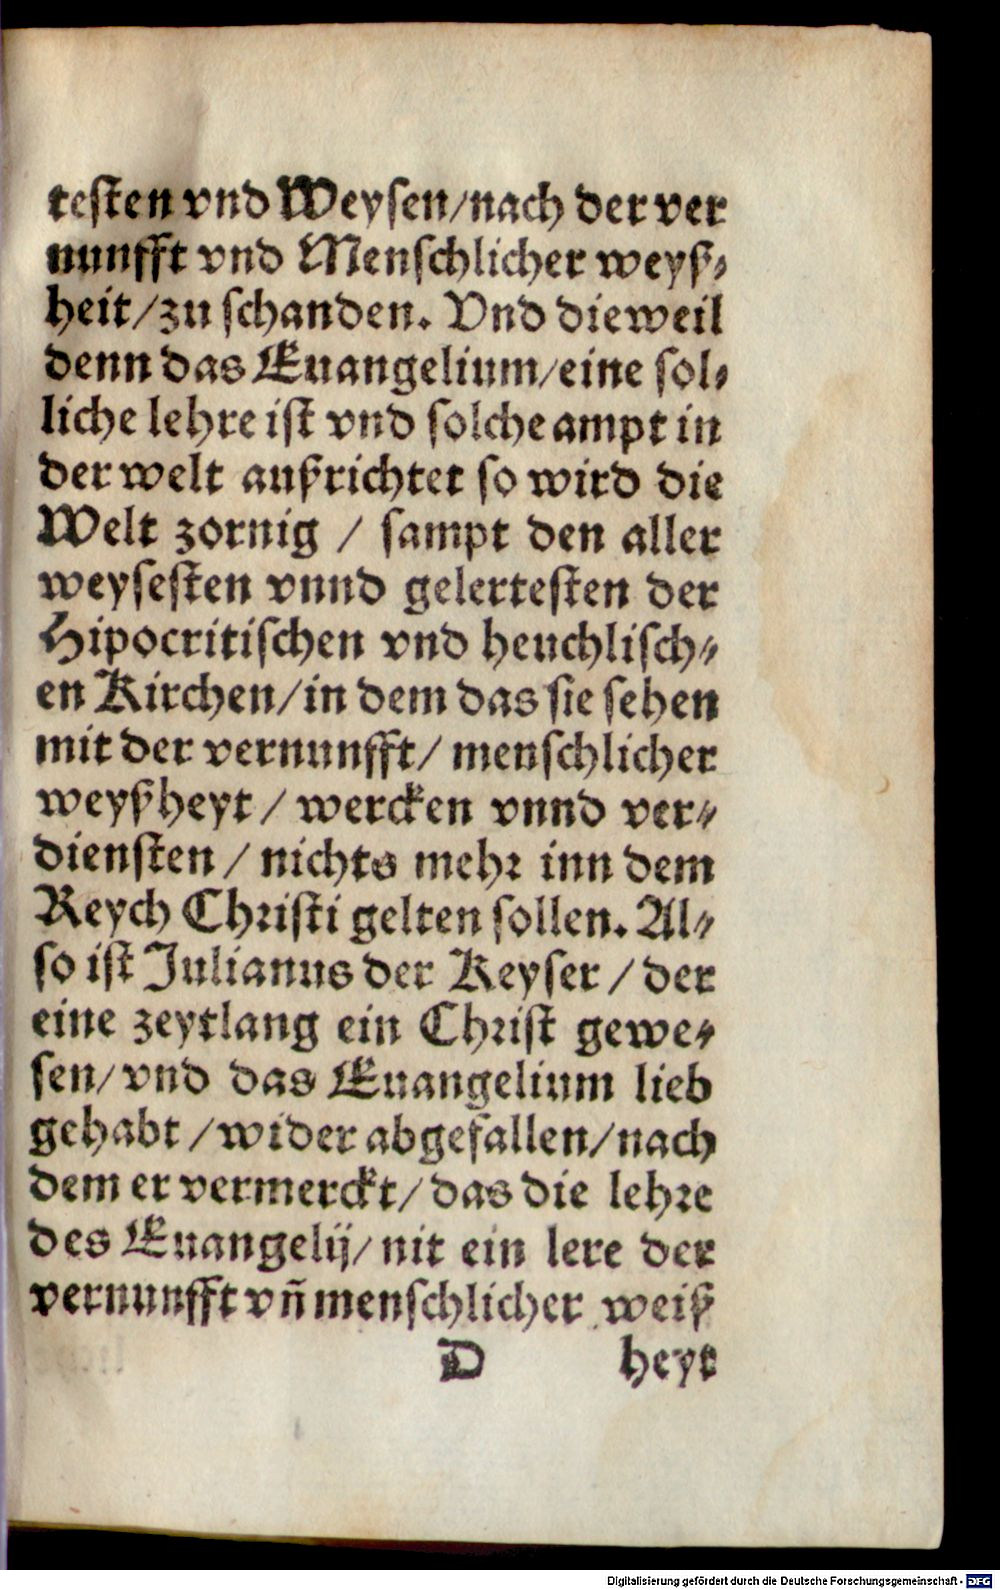 testen vnd Weysen/nach der ver
nunfft vnd Menschlicher weyß⸗
heit/zu schanden. Vnd dieweil
denn das Euangelium/eine sol⸗
liche lehre ist vnd solche ampt in
der welt außrichtet so wird die
Welt zornig / sampt den aller
weysesten vnnd gelertesten der
Hipocritischen vnd heuchlisch⸗
en Kirchen/in dem das sie sehen
mit der vernunfft/ menschlicher
weyßheyt / wercken vnnd ver⸗
diensten / nichts mehr inn dem
Reych Christi gelten sollen. Al⸗
so ist Julianus der Keyser / der
eine zeytlang ein Christ gewe⸗
sen/ vnd das Euangelium lieb
gehabt /wider abgefallen/nach
dem er vermerckt/ das die lehre
des Euangelij/ nit ein lere der
vernunfft vñ menschlicher weiß
D heyt
Digitalisierung gefördert durch die Deutsche Forschungsgemeinschaft - DFG